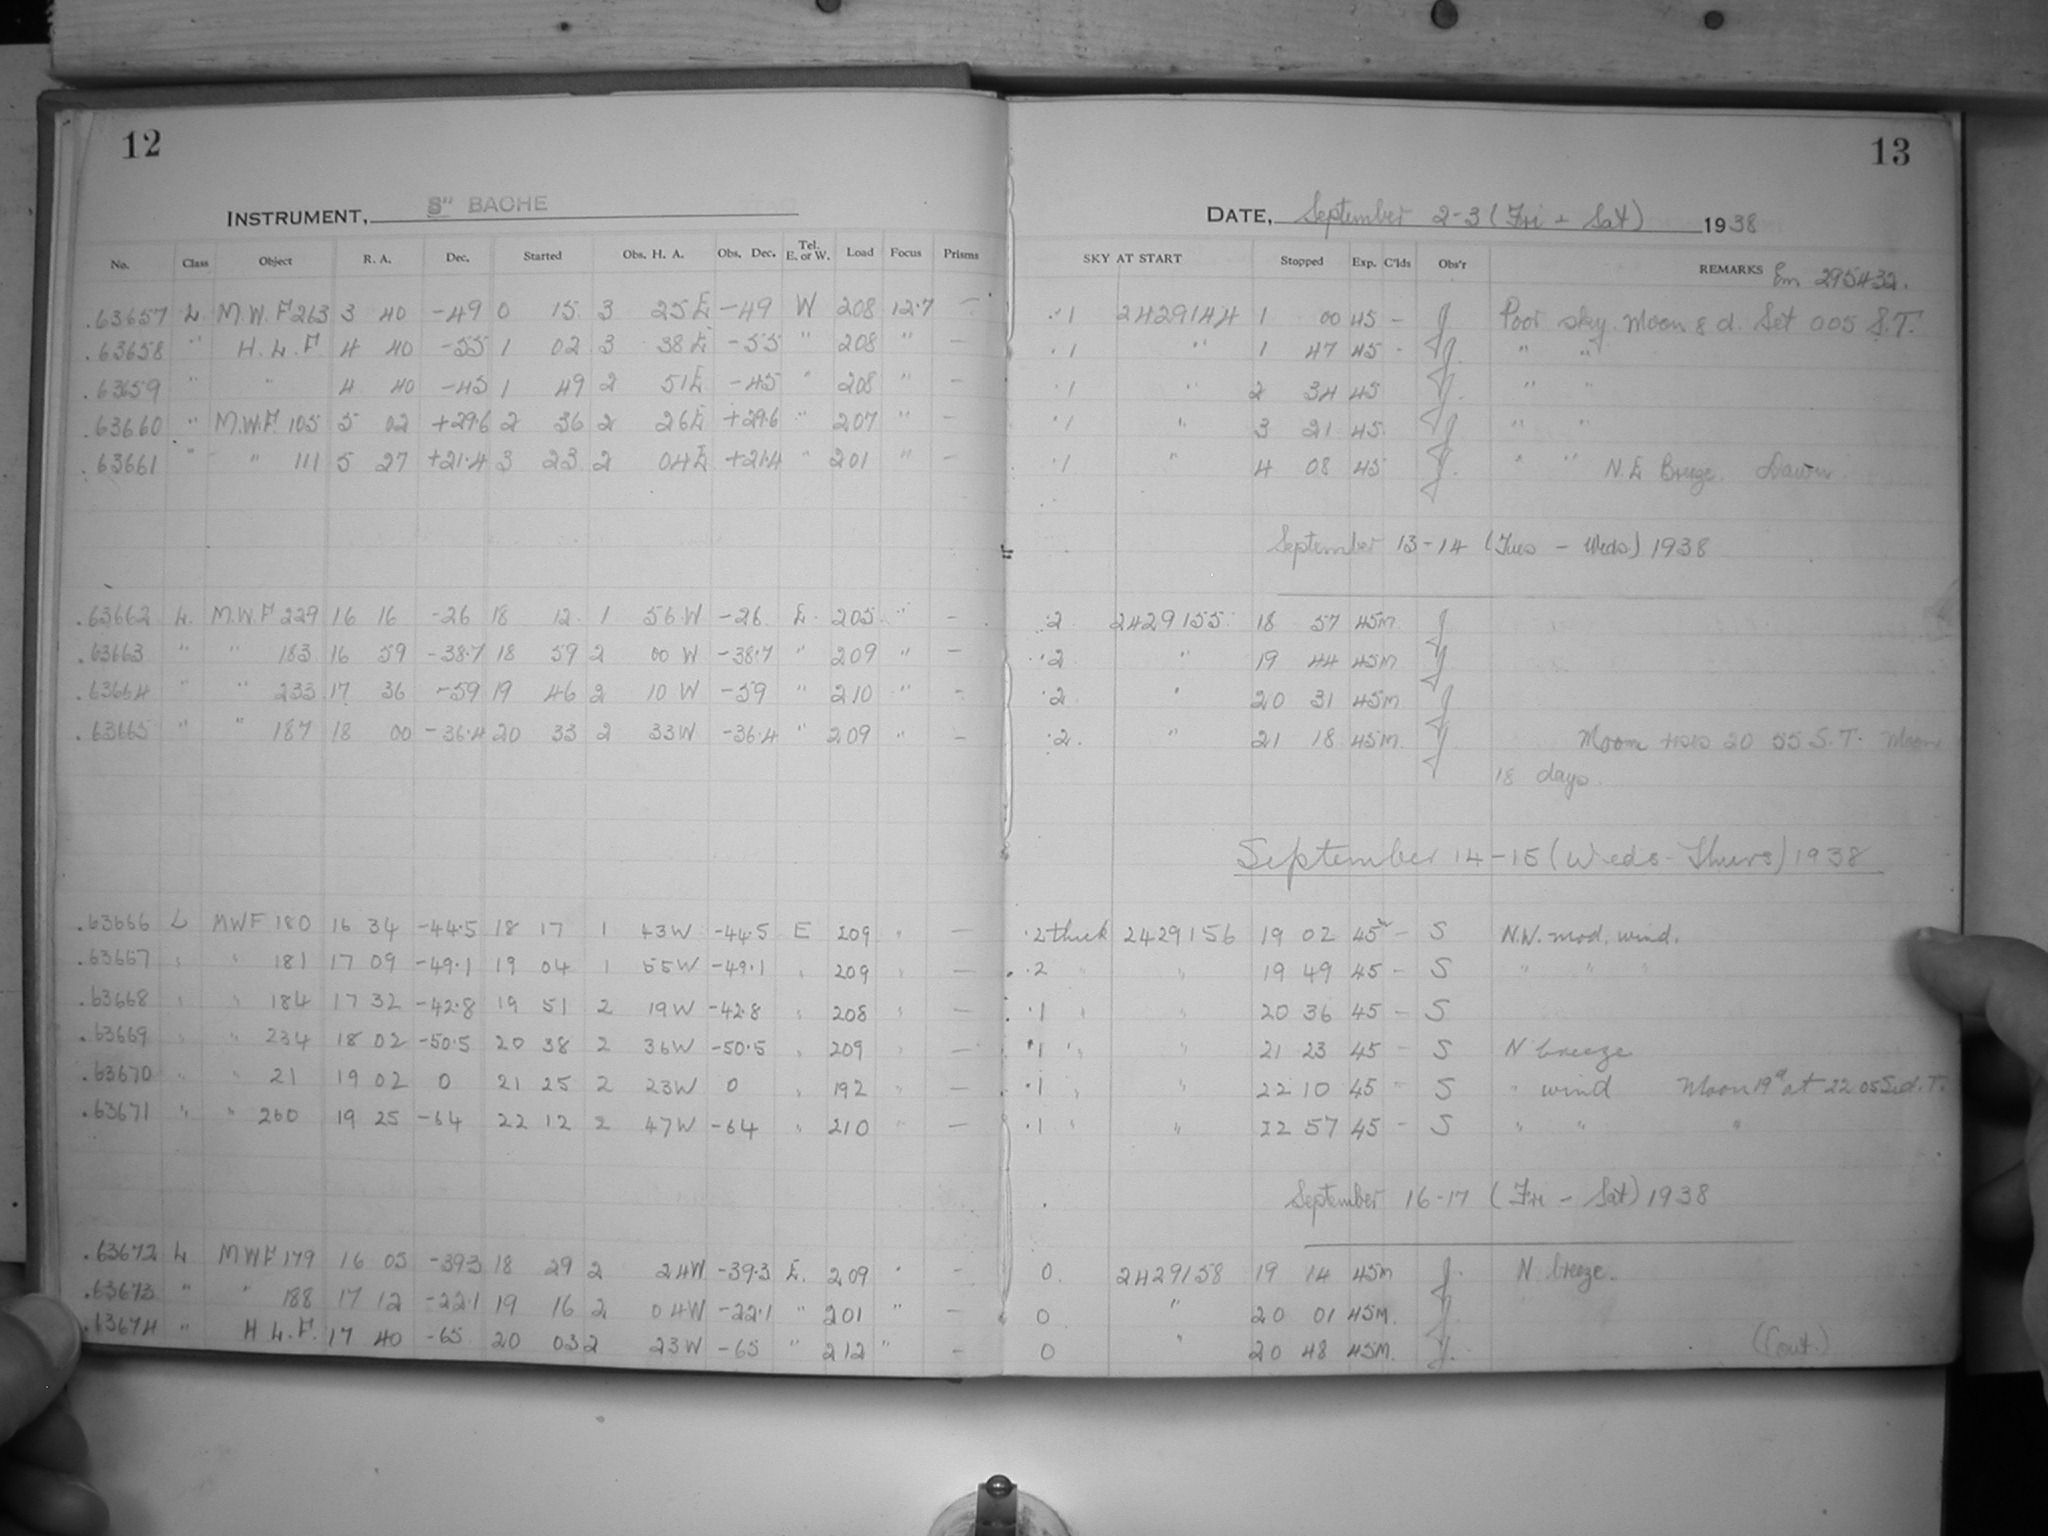 12
INSTRUMENT, 8" BACHE
No. Class Object R. A. Dec. Started Obs. H. A. Obs. Dec. Tel. E. or W. Load Focus Prisms
.63657 L M.W.F 263 3 40 -49 0 15 3 25 E -49 W 208 12.7 -
.63658 " H.L.F 4 40 -55 1 02 3 38 E -55 " 208 " -
.63659 " " 4 40 -45 1 49 2 51 E -45 " 208 " -
.63660 " M.W.F. 105 5 02 +29.6 2 36 2 26 E +29.6 " 207 " -
.63661 " " 111 5 27 +21.4 3 23 2 04 E +21.4 " 201 " -
.63662 L. M.W.F 229 16 16 -26 18 12 1 56 W -26 E. 205 " -
.63663 " " 183 16 59 -38.7 18 59 2 00 W -38.7 " 209 " -
.63664 " " 233 17 36 -59 19 46 2 10 W -59 " 210 " -
.63665 " " 187 18 00 -36.4 20 33 2 33 W -36.4 " 209 " -
.63666 L MWF 180 16 34 -44.5 18 17 1 43 W -44.5 E 209 " -
.63667 " " 181 17 09 -49.1 19 04 1 55 W -49.1 " 209 " -
.63668 " " 184 17 32 -42.8 19 51 2 19 W -42.8 " 208 " -
.63669 " " 234 18 02 -50.5 20 38 2 36 W -50.5 " 209 " -
.63670 " " 21 19 02 0 21 25 2 23 W 0 " 192 " -
.63671 " " 260 19 25 -64 22 12 2 47 W -64 " 210 " -
.63672 L MWF 179 16 05 -39.3 18 29 2 24 W -39.3 E. 209 " -
.63673 " " 188 17 12 -22.1 19 16 2 04 W -22.1 " 201 " -
.63674 " H.L.F. 17 40 -65 20 03 2 23 W -65 " 212 " -
13
DATE, September 2-3 (Fri - Sat) 1938
SKY AT START Stopped Exp. C'lds Obs'r REMARKS Em 295432.
.1 2429144 1 00 45 - J Poor sky. Moon 8 d. Set 005 S.T.
.1 " 1 47 45 - J " "
.1 " 2 34 45 J " "
.1 " 3 21 45 J " "
.1 " 4 08 45 J " " N.E Breeze. Dawn
September 13-14 (Tues - Weds) 1938
.2 2429155 18 57 45m J
.2 " 19 44 45m J
.2 " 20 31 45m J
.2 " 21 18 45m J Moon 20 55 S.T. Moon
18 days.
September 14-15 (Weds - Thurs) 1938
.2 thick 2429156 19 02 45 - S N.W. mod. wind.
.2 " " 19 49 45 - S " " "
.1 " " 20 36 45 - S
.1 " " 21 23 45 - S N breeze
.1 " " 22 10 45 - S " wind Moon 19d at 22 05 Sid. T.
.1 " " 22 57 45 - S " " "
September 16-17 (Fri - Sat) 1938
0 2429158 19 14 45m J N breeze.
0 " 20 01 45m. J
0 " 20 48 45m. J. (Cont.)